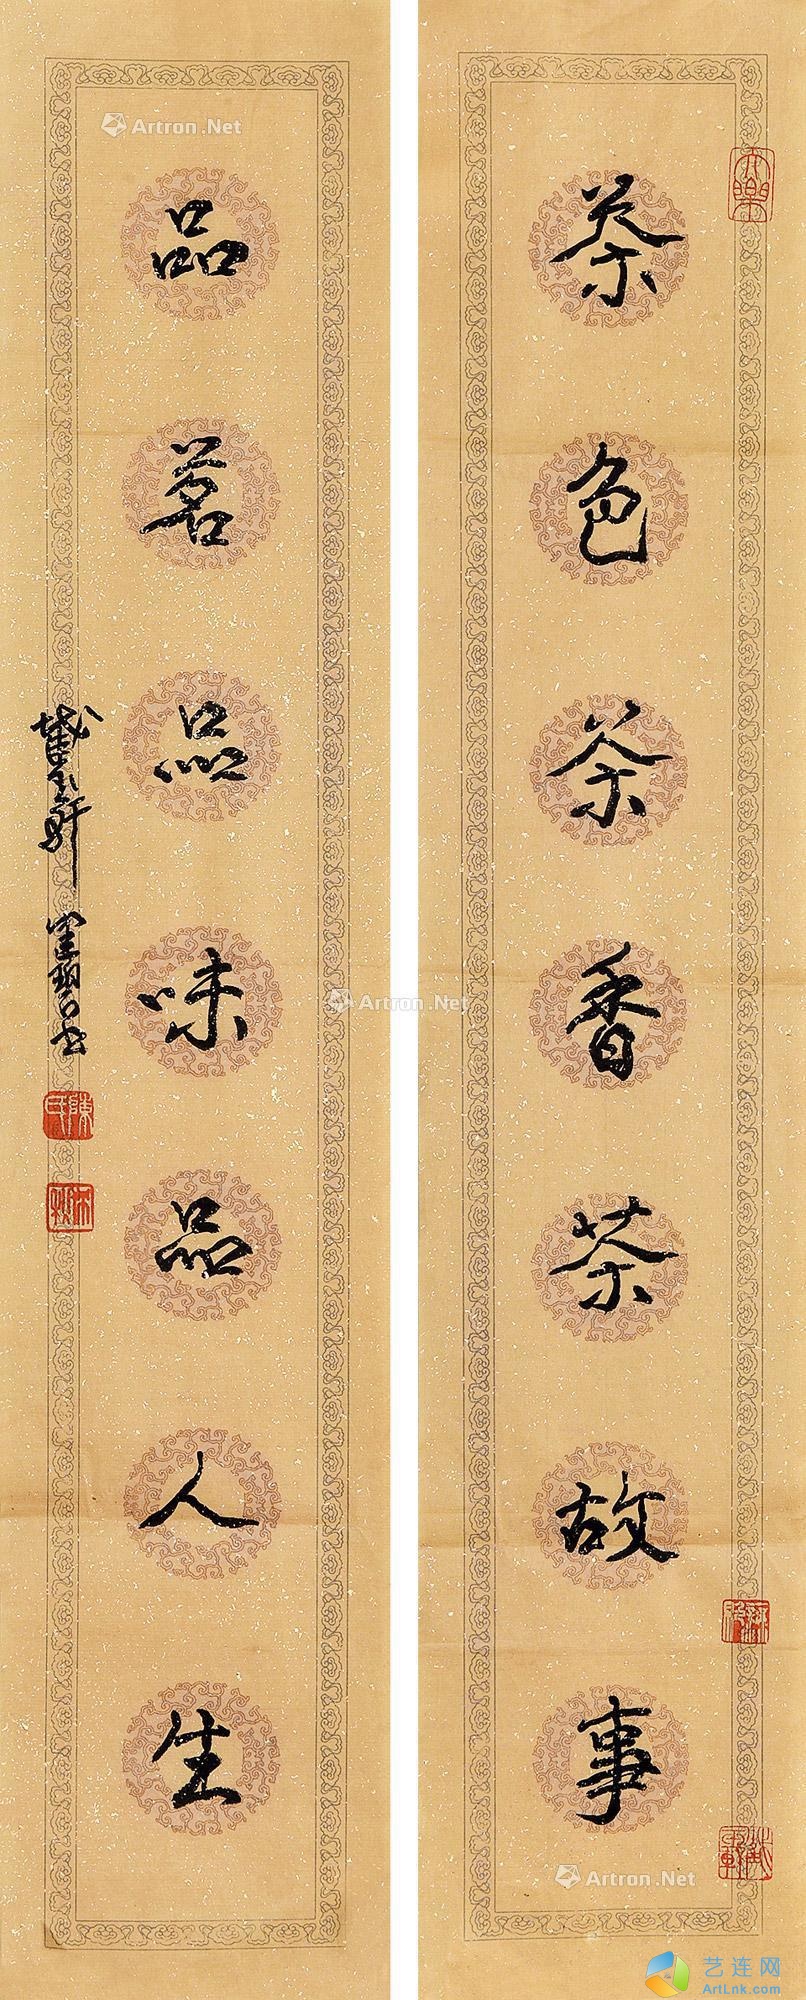 茶色茶香茶故事
品茗品味品人生
Artron.Net
Artron.Net
Artron.Net
艺连网
ArtLnk.com